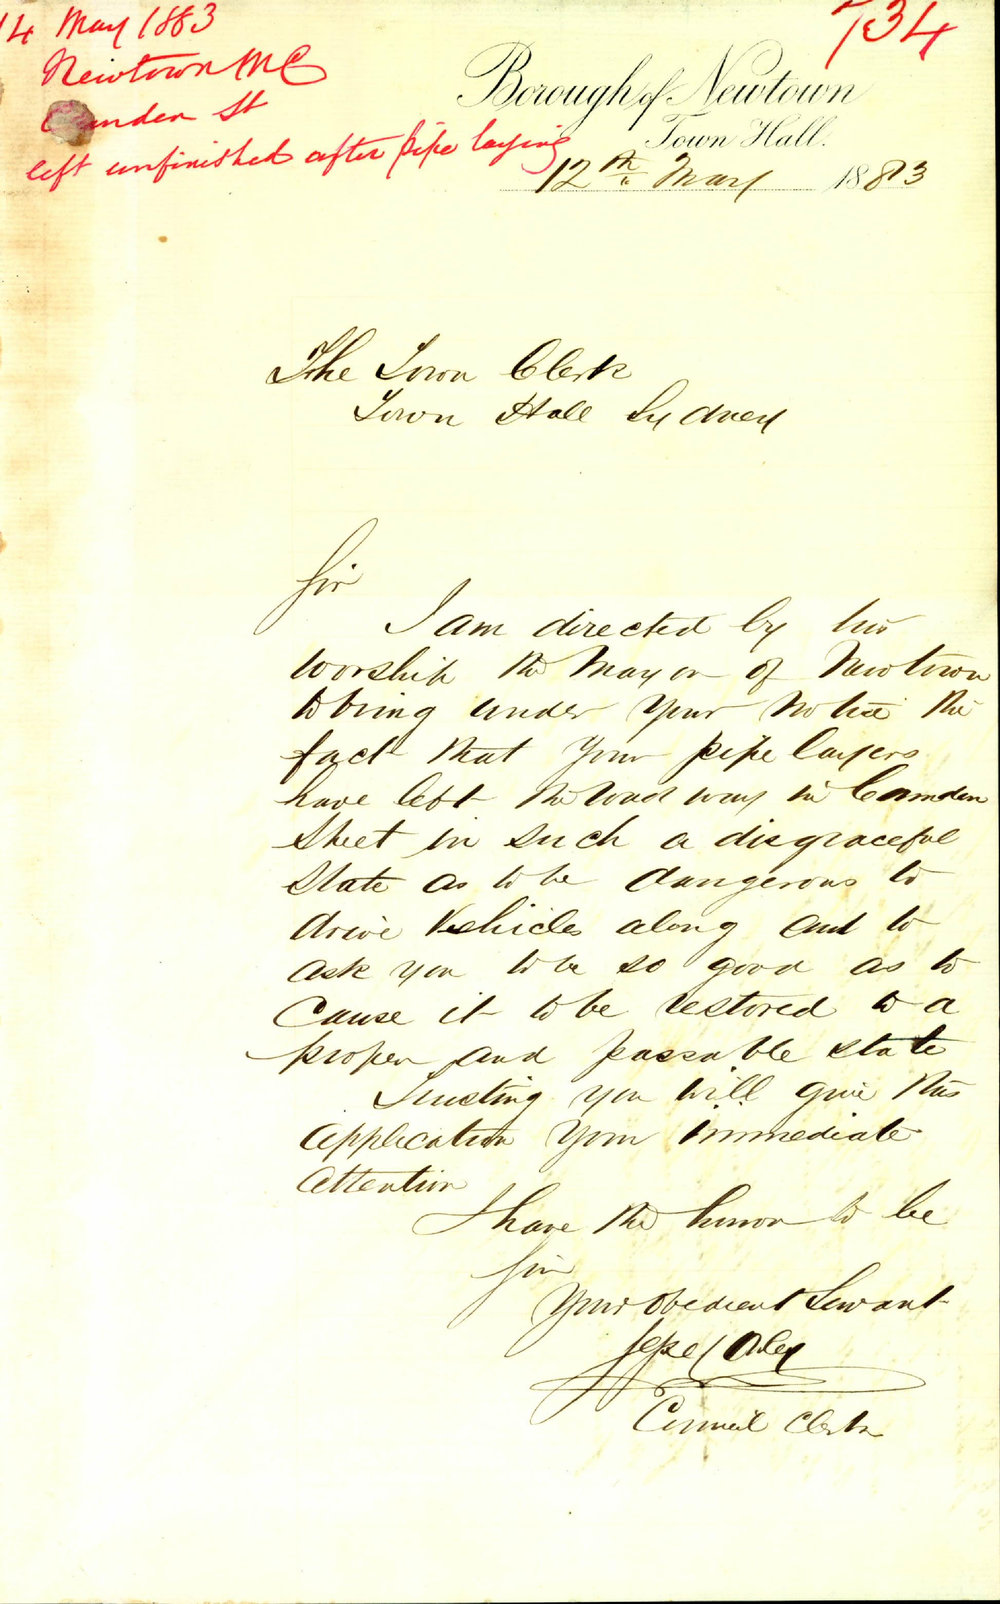 14 May 1883
734
Newtown MC
Camden St
left unfinished after pipe laying
Borough of Newtown
Town Hall.
12th May 1883
The Town Clerk
Town Hall Sydney
Sir
I am directed by his
Worship the Mayor of Newtown
to bring under your notice the
fact that your pipe layers
have left the road way in Camden
Street in such a disgraceful
State as to be dangerous to
drive Vehicles along and to
ask you to be so good as to
Cause it to be restored to a
proper and passable state
Trusting you will give this
application your immediate
attention
I have the honor to be
Sir
Your obedient Servant
Council Clerk